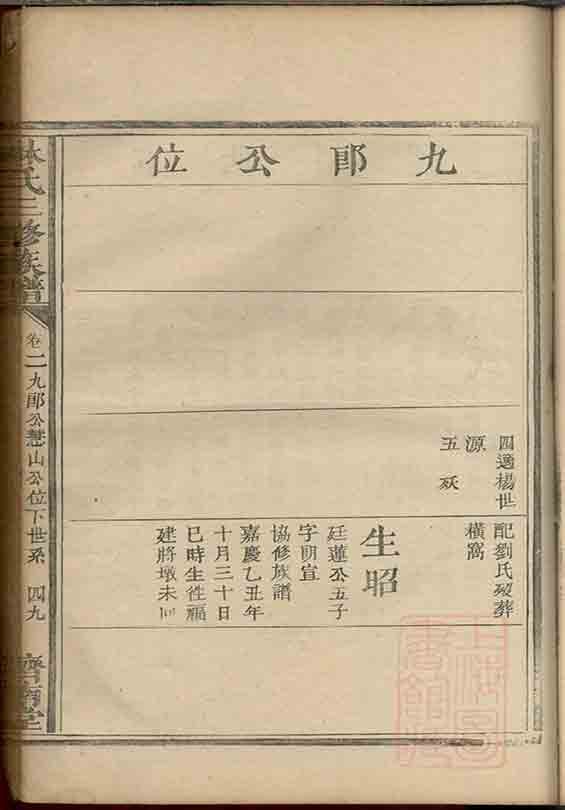 九郎公位
四適楊世
源
五殀
配劉氏歿葬
橫窩
生昭
廷蓮公五子
字朗宣
協修族譜
嘉慶乙丑年
十月三十日
巳時生徃福
建將墩未回
林氏三修族譜
卷二九郎公慧山公位下世系 四九
濟南堂
上海圖書館藏